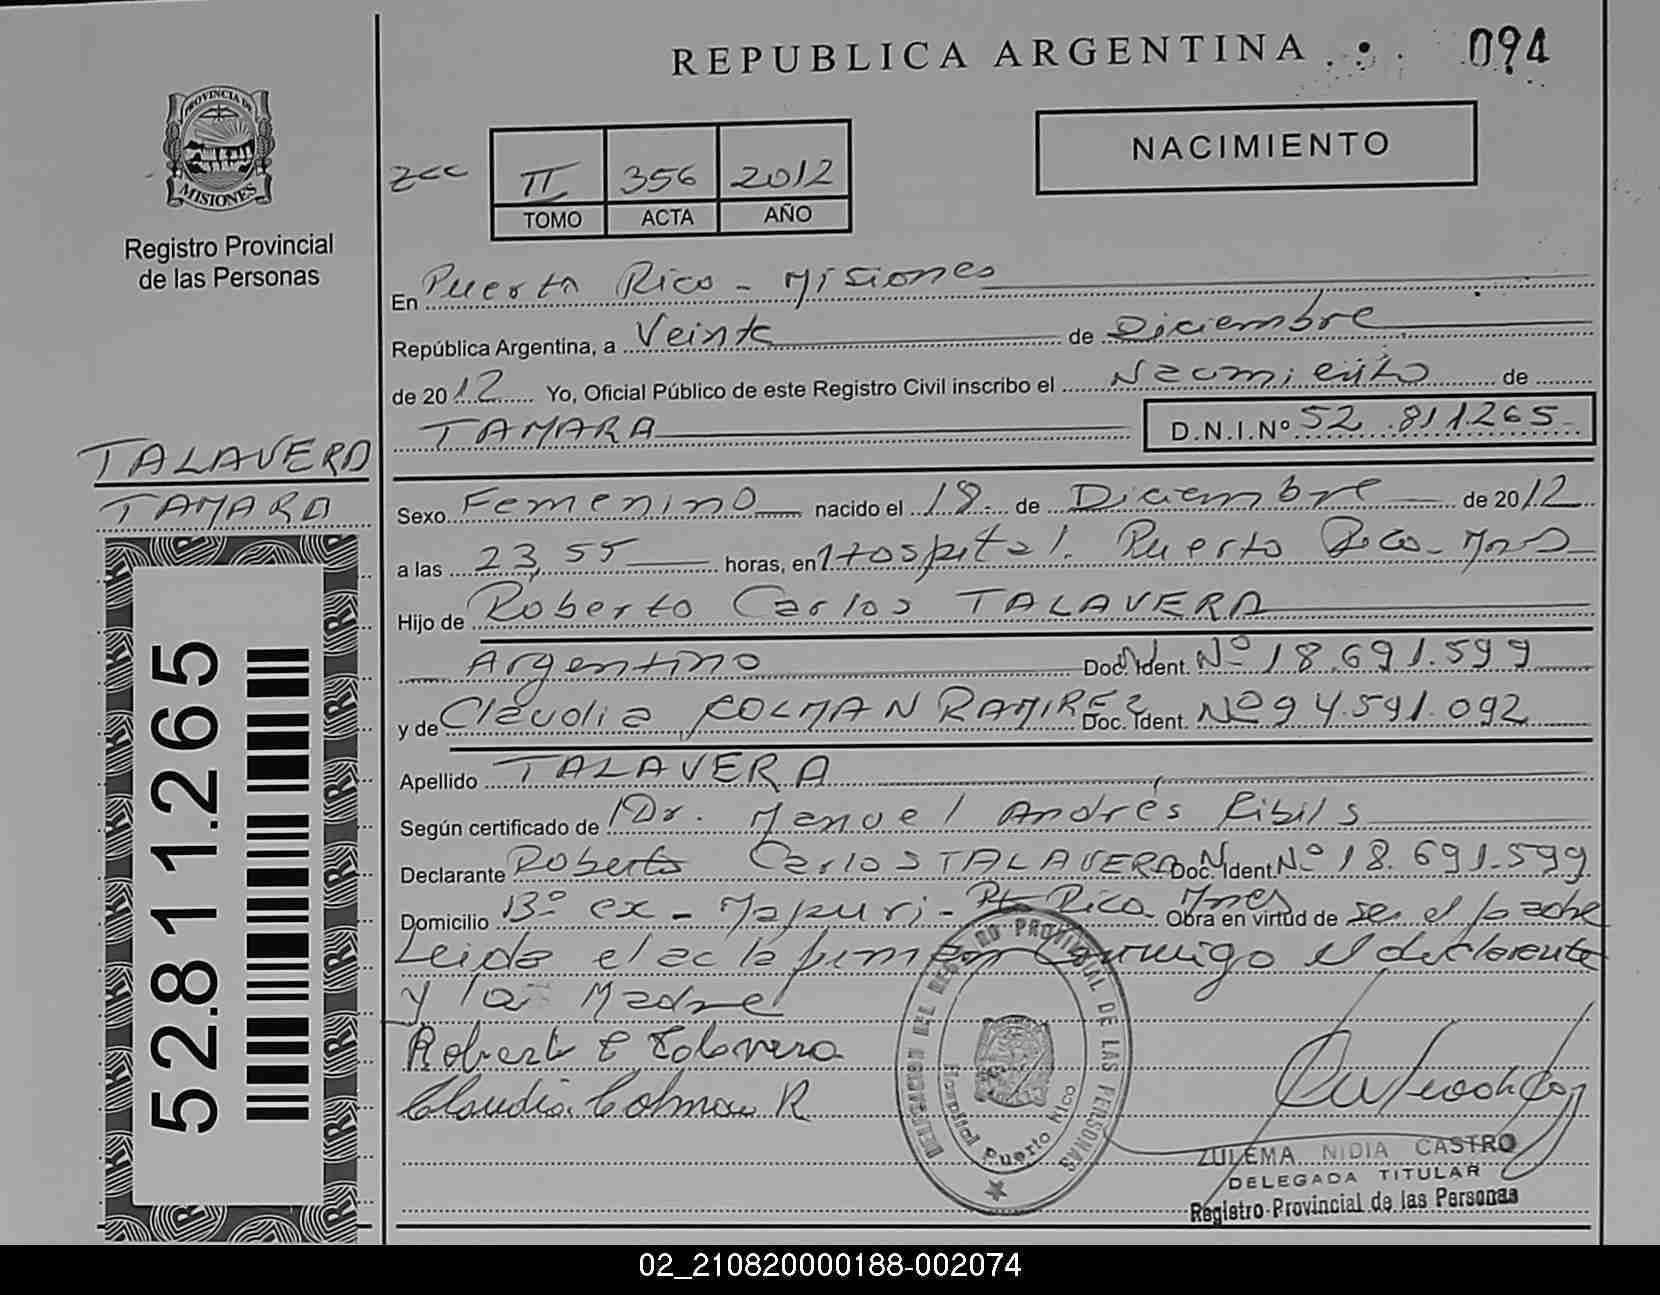 REPUBLICA ARGENTINA
094
PROVINCIA DE
MISIONES
Registro Provincial
de las Personas
NACIMIENTO
II 356 2012
TOMO ACTA AÑO
En Puerto Rico - Misiones
República Argentina, a Veinte de Diciembre
de 2012 Yo, Oficial Público de este Registro Civil inscribo el Nacimiento de
TAMARA D.N.I.Nº 52.811265
TALAVERA
TAMARA
Sexo Femenino nacido el 18 de Diciembre de 2012
a las 23,55 horas, en Hospital. Puerto Rico - Mns
Hijo de Roberto Carlos TALAVERA
Argentino Doc. Ident. Nº 18.691.599
y de Claudia COLMAN RAMIREZ Doc. Ident. Nº 94.591.092
Apellido TALAVERA
Según certificado de Dr. Manuel Andrés Ribils
Declarante Roberto Carlos TALAVERA Doc. Ident. Nº 18.691.599
Domicilio Bº ex - - Pto Rico Mnes Obra en virtud de ser el padre
Leida el acta firman conmigo el declarante
y la Madre
Roberto C Talavera
Claudia Colman R
52.811.265
DELEGACION DEL REGISTRO PROVINCIAL DE LAS PERSONAS
Hospital Puerto Rico
ZULEMA NIDIA CASTRO
DELEGADA TITULAR
Registro Provincial de las Personas
02_210820000188-002074